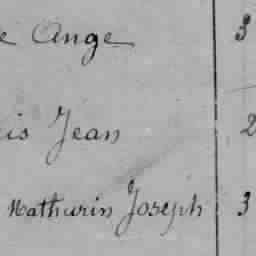 e Ange 3
is Jean 2
Mathurin Joseph 3